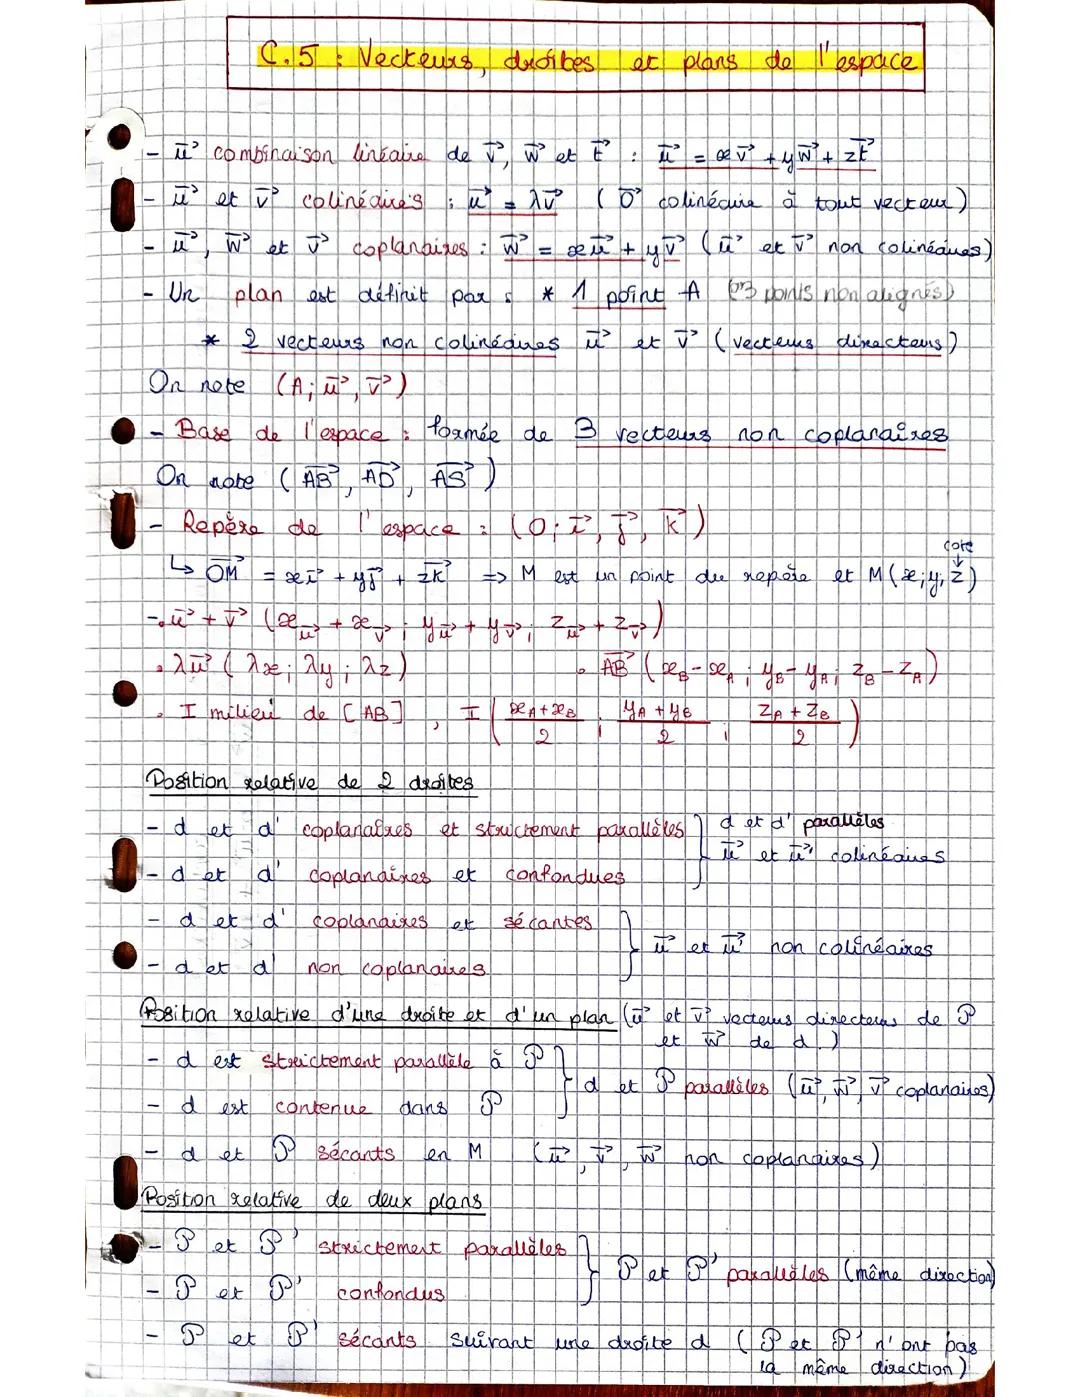 C.5 : Vecteurs, droites et plans de l'espace
- u⃗ combinaison linéaire de v⃗, w⃗ et t⃗ : u⃗ = xv⃗ + yw⃗ + zt⃗
- u⃗ et v⃗ colinéaires : u⃗ = λv⃗ ( 0⃗ colinéaire à tout vecteur)
- u⃗, w⃗ et v⃗ coplanaires : w⃗ = xu⃗ + yv⃗ (u⃗ et v⃗ non colinéaires)
- Un plan est définit par : * 1 point A (ou 3 points non alignés)
* 2 vecteurs non colinéaires u⃗ et v⃗ (vecteurs directeurs)
On note (A; u⃗, v⃗)
- Base de l'espace : formée de 3 vecteurs non coplanaires
On note (AB⃗, AD⃗, AS⃗)
- Repère de l'espace : (O; i⃗, j⃗, k⃗)
cote
↳ OM⃗ = xi⃗ + yj⃗ + zk⃗ => M est un point du repère et M(x; y; z)
-• u⃗ + v⃗ (x_u⃗ + x_v⃗ ; y_u⃗ + y_v⃗ ; z_u⃗ + z_v⃗)
• λu⃗ (λx ; λy ; λz) • AB⃗ (x_B - x_A ; y_B - y_A ; z_B - z_A)
• I milieu de [AB], I ((x_A + x_B)/2 ; (y_A + y_B)/2 ; (z_A + z_B)/2)
Position relative de 2 droites
- d et d' coplanaires et strictement parallèles } d et d' parallèles
u⃗ et u⃗' colinéaires
- d et d' coplanaires et confondues
- d et d' coplanaires et sécantes
} u⃗ et u⃗' non colinéaires
- d et d' non coplanaires
Position relative d'une droite et d'un plan (u⃗ et v⃗ vecteurs directeurs de P
et w⃗ de d.)
- d est strictement parallèle à P
} d et P parallèles (u⃗, w⃗, v⃗ coplanaires)
- d est contenue dans P
- d et P sécants en M (u⃗, v⃗, w⃗ non coplanaires)
Position relative de deux plans
- P et P' strictement parallèles
} P et P' parallèles (même direction)
- P et P' confondus
- P et P' sécants suivant une droite d (P et P' n'ont pas
la même direction)